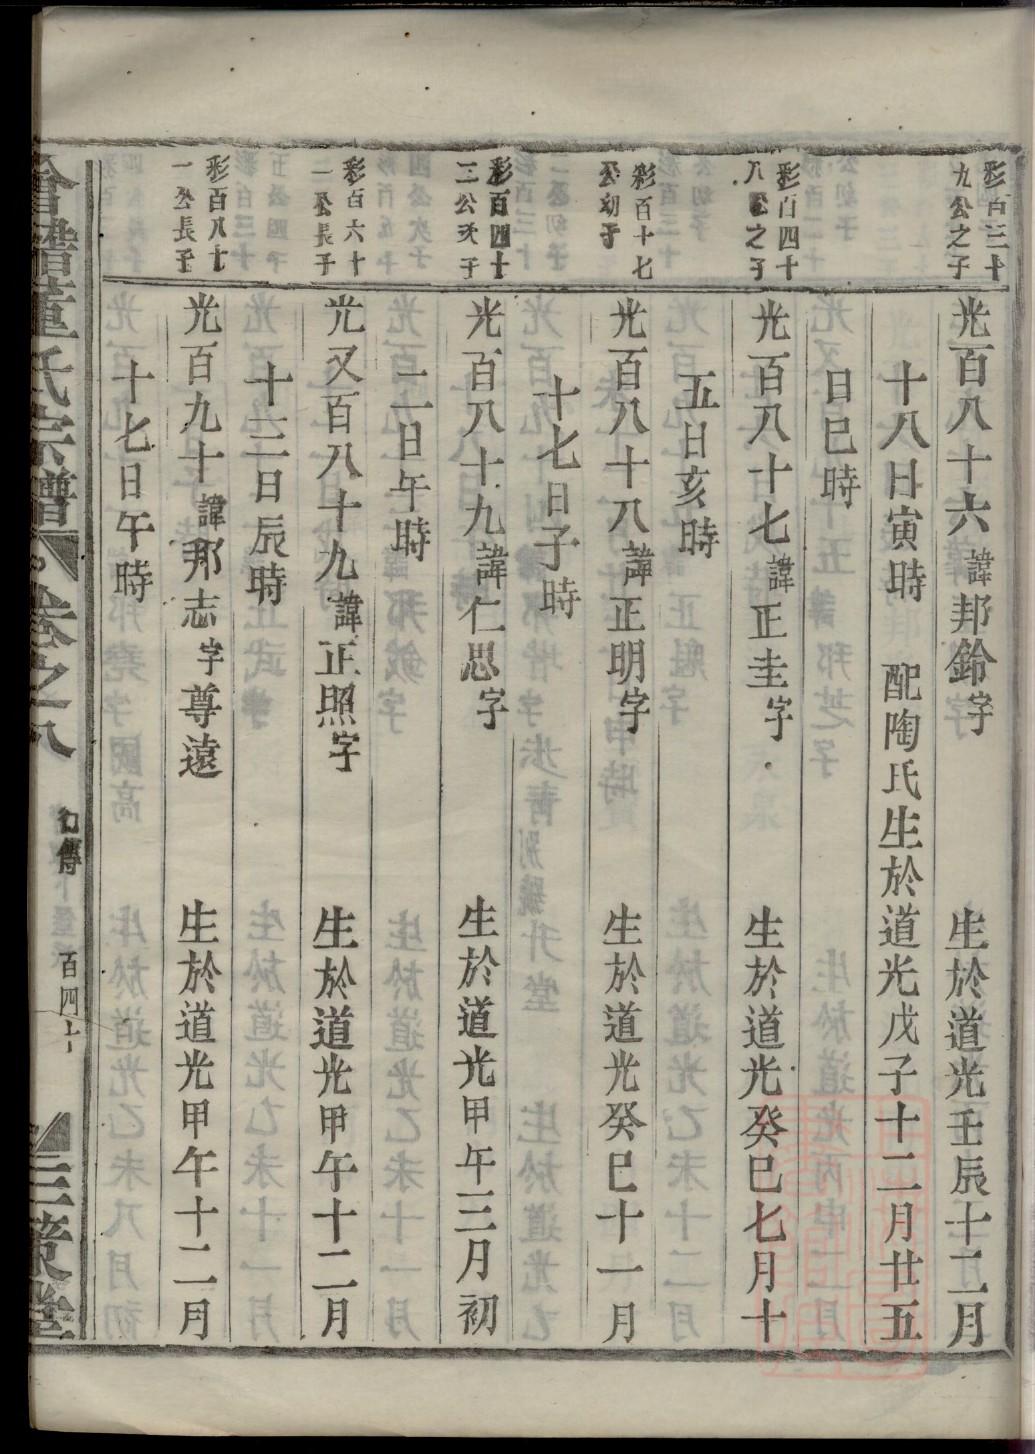 彩百三十
九公之子
光百八十六諱邦鈴字　生於道光壬辰十二月
十八日寅時　配陶氏生於道光戊子十二月廿五
日巳時
彩百四十
八公之子
光百八十七諱正圭字　生於道光癸巳七月十
五日亥時
彩百十七
公幼子
光百八十八諱正明字　生於道光癸巳十一月
十七日子時
彩百四十
二公次子
光百八十九諱仁思字　生於道光甲午三月初
二日午時
彩百六十
一公長子
光又百八十九諱正照字　生於道光甲午十二月
十三日辰時
彩百八十
一公長子
光百九十諱邦志字尊遠　生於道光甲午十二月
十七日午時
會稽董氏宗譜　卷之八　幻傳　百四十　三策堂